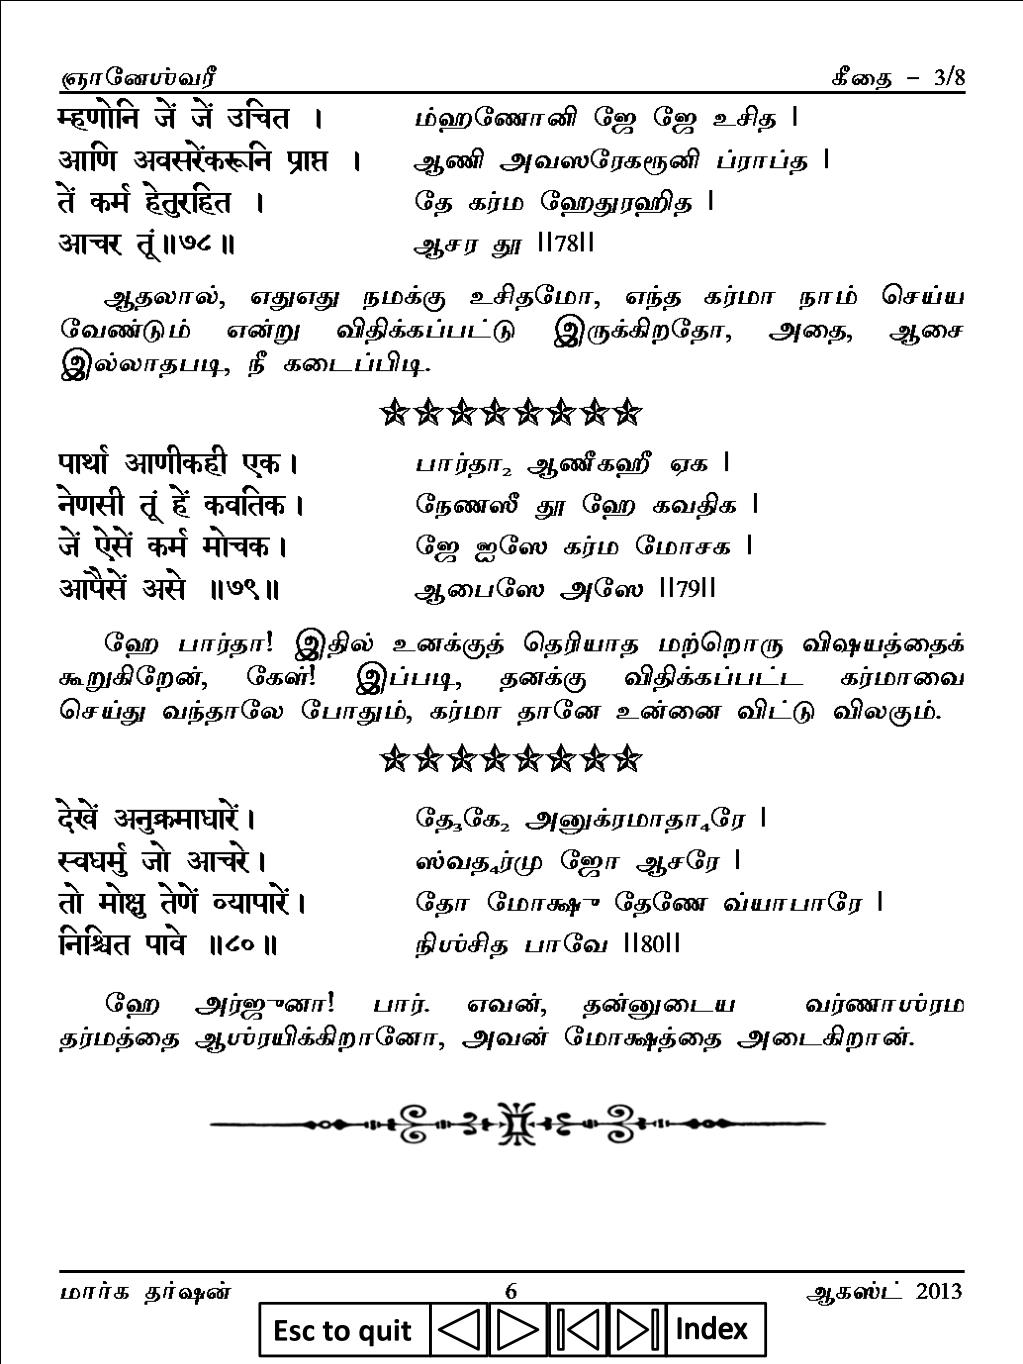 ஞானேஶ்வரீ கீதை – 3/8
म्हणोनि जें जें उचित । ம்ஹணோனி ஜே ஜே உசித |
आणि अवसरेंकरूनि प्राप्त । ஆணி அவஸரேகரூனி ப்ராப்த |
तें कर्म हेतुरहित । தே கர்ம ஹேதுரஹித |
आचर तूं॥७८॥ ஆசர தூ ||78||
ஆதலால், எதுஎது நமக்கு உசிதமோ, எந்த கர்மா நாம் செய்ய
வேண்டும் என்று விதிக்கப்பட்டு இருக்கிறதோ, அதை, ஆசை
இல்லாதபடி, நீ கடைப்பிடி.
पार्था आणीकही एक। பார்தா₂ ஆணீகஹீ ஏக |
नेणसी तूं हें कवतिक। நேணஸீ தூ ஹே கவதிக |
जें ऐसें कर्म मोचक। ஜே ஐஸே கர்ம மோசக |
आपैसें असे ॥७९॥ ஆபைஸே அஸே ||79||
ஹே பார்தா! இதில் உனக்குத் தெரியாத மற்றொரு விஷயத்தைக்
கூறுகிறேன், கேள்! இப்படி, தனக்கு விதிக்கப்பட்ட கர்மாவை
செய்து வந்தாலே போதும், கர்மா தானே உன்னை விட்டு விலகும்.
देखें अनुक्रमाधारें। தே₃கே₂ அனுக்ரமாதா₄ரே |
स्वधर्मु जो आचरे। ஸ்வத₄ர்மு ஜோ ஆசரே |
तो मोक्षु तेणें व्यापारें। தோ மோக்ஷு தேணே வ்யாபாரே |
निश्चित पावे ॥८०॥ நிஶ்சித பாவே ||80||
ஹே அர்ஜுனா! பார். எவன், தன்னுடைய வர்ணாஶ்ரம
தர்மத்தை ஆஶ்ரயிக்கிறானோ, அவன் மோக்ஷத்தை அடைகிறான்.
மார்க தர்ஷன் 6 ஆகஸ்ட் 2013
Esc to quit Index